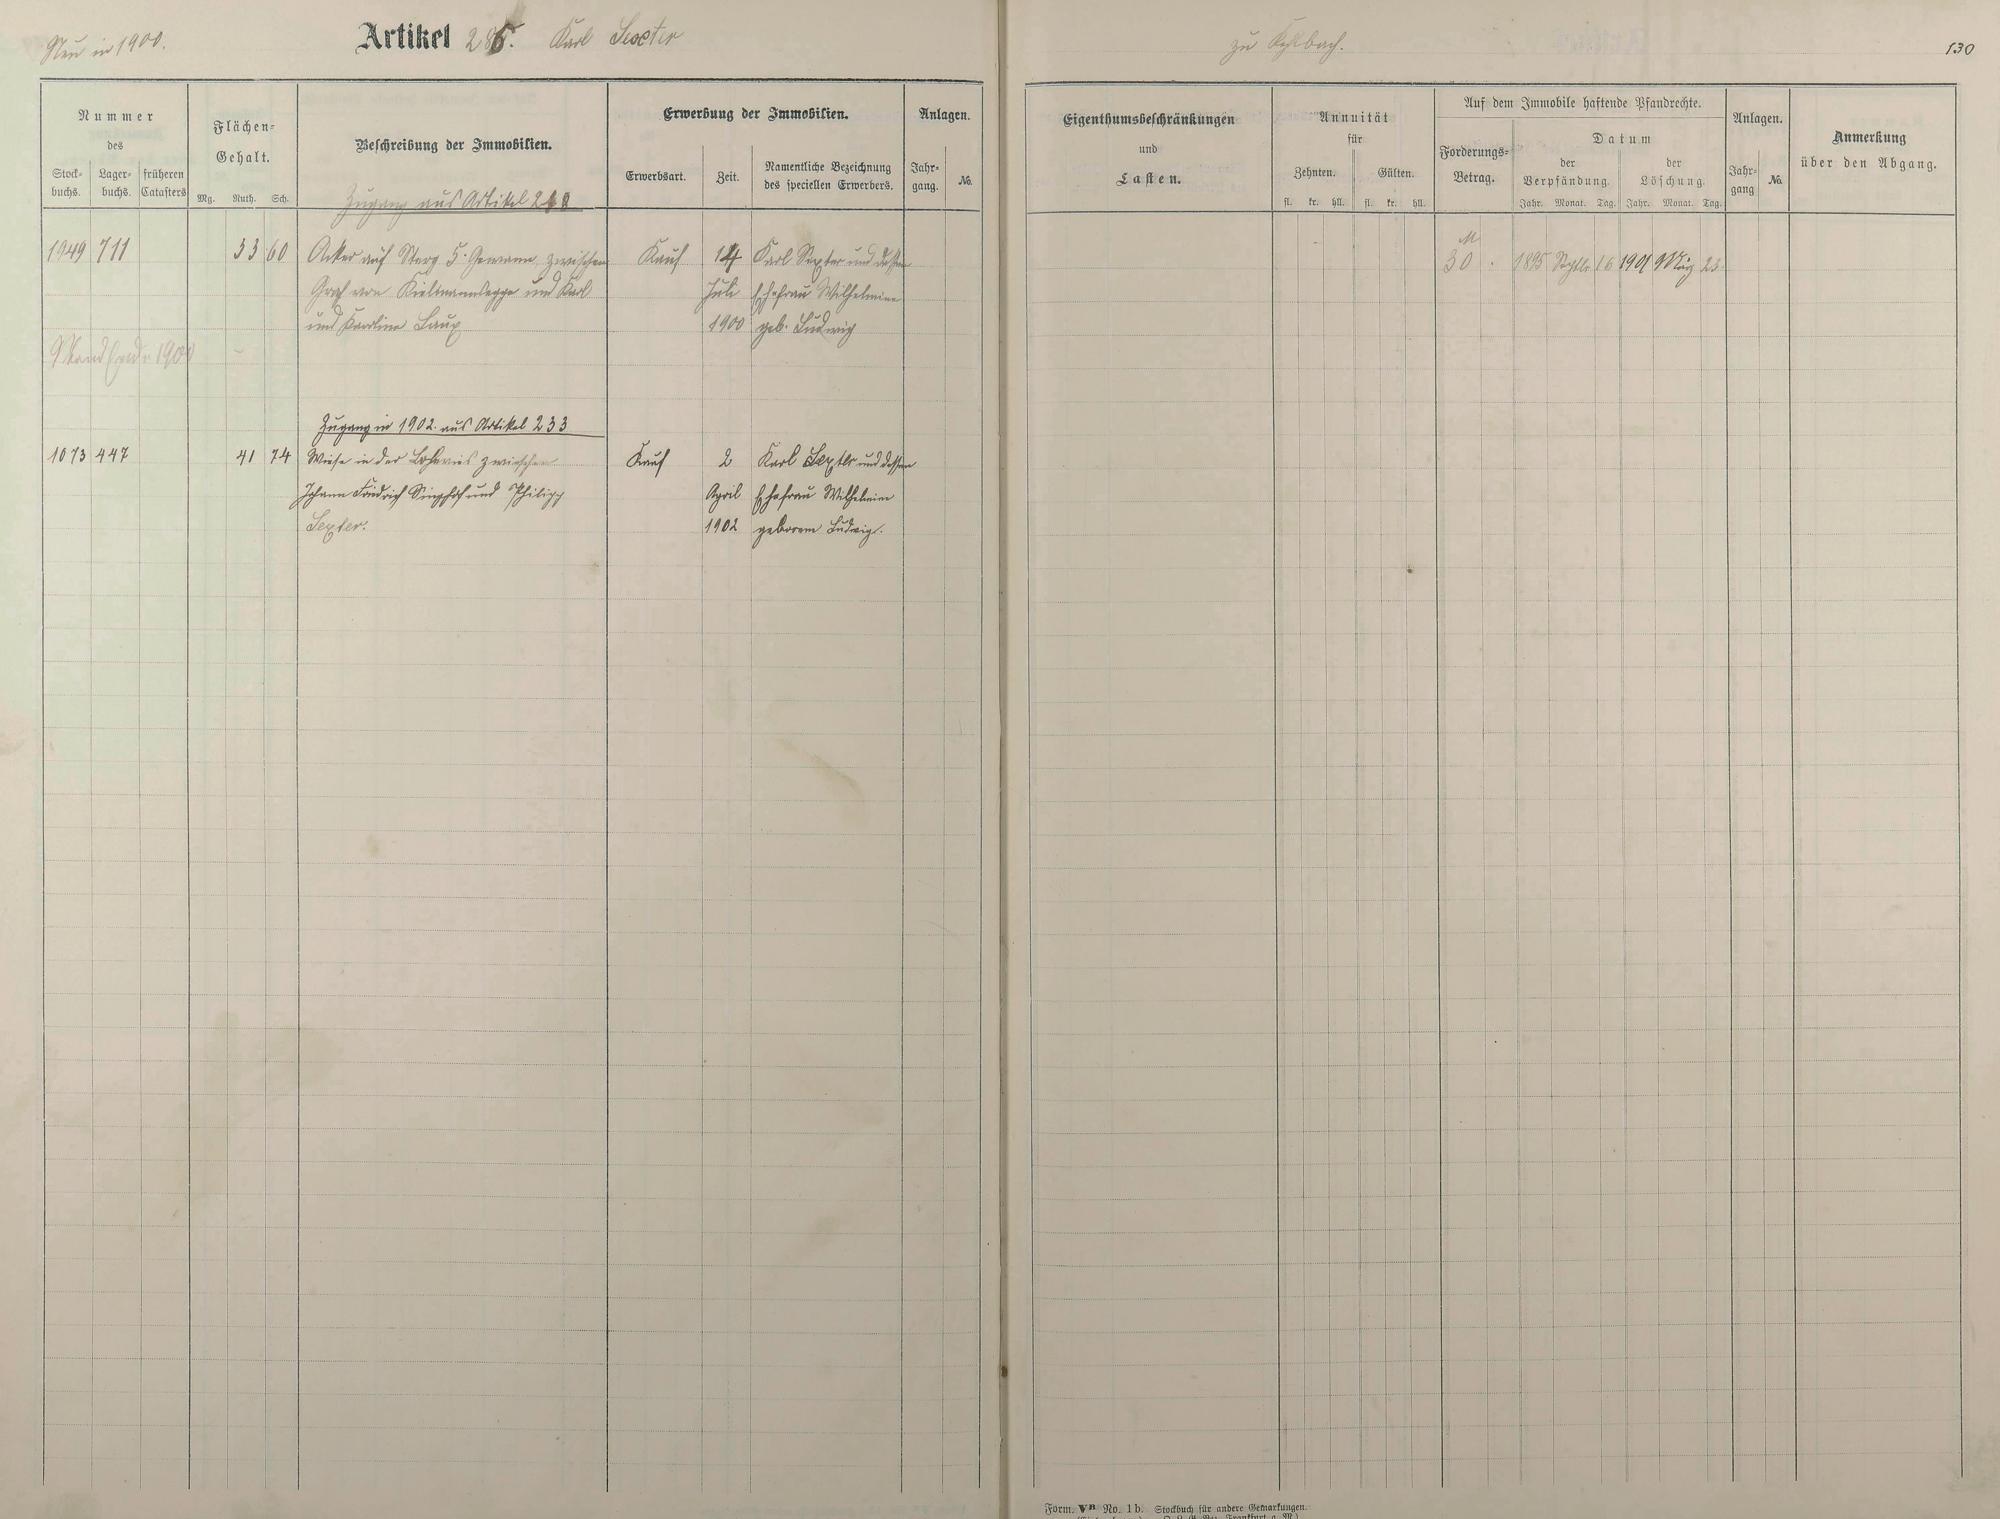 Neu in 1900.
Artikel 286. Karl Sexter
zu Kehlbach.
130
Nummer
des
Stock-
buchs.
Lager-
buchs.
früheren
Catasters
Flächen-
Gehalt.
Mg. Ruth. Sch.
Beschreibung der Immobilien.
Erwerbung der Immobilien.
Erwerbsart.
Zeit.
Namentliche Bezeichnung
des speciellen Erwerbers.
Anlagen.
Jahr-
gang.
No.
Eigenthumsbeschränkungen
und
Lasten.
Annuität
für
Zehnten.
Gülten.
fl. kr. hll. fl. kr. hll.
Auf dem Immobile haftende Pfandrechte.
Forderungs-
Betrag.
Datum
der
Verpfändung.
der
Löschung.
Jahr. Monat. Tag. Jahr. Monat. Tag.
Anlagen.
Jahr-
gang
No.
Anmerkung
über den Abgang.
Zugang aus Artikel
1949 711 33 60 Acker auf 5. Gewann, zwischen Kauf 14 Karl Sexter und dessen
Graf von Kielmannsegge und Karl Juli Ehefrau Wilhelmine
und Karoline Laux 1900 geb. Ludwig
M
30 . 1895 Septbr 16 1901 März 23.
Stand Ende 1900 –
Zugang in 1902 aus Artikel 233
1073 447 41 74 Wiese in der zwischen Kauf 2 Karl Sexter und dessen
Johann Friedrich Singhof und Philipp April Ehefrau Wilhelmine
Sexter. 1902 geborene Ludwig.
Form. VB No. 1b. Stockbuch für andere Gemarkungen.